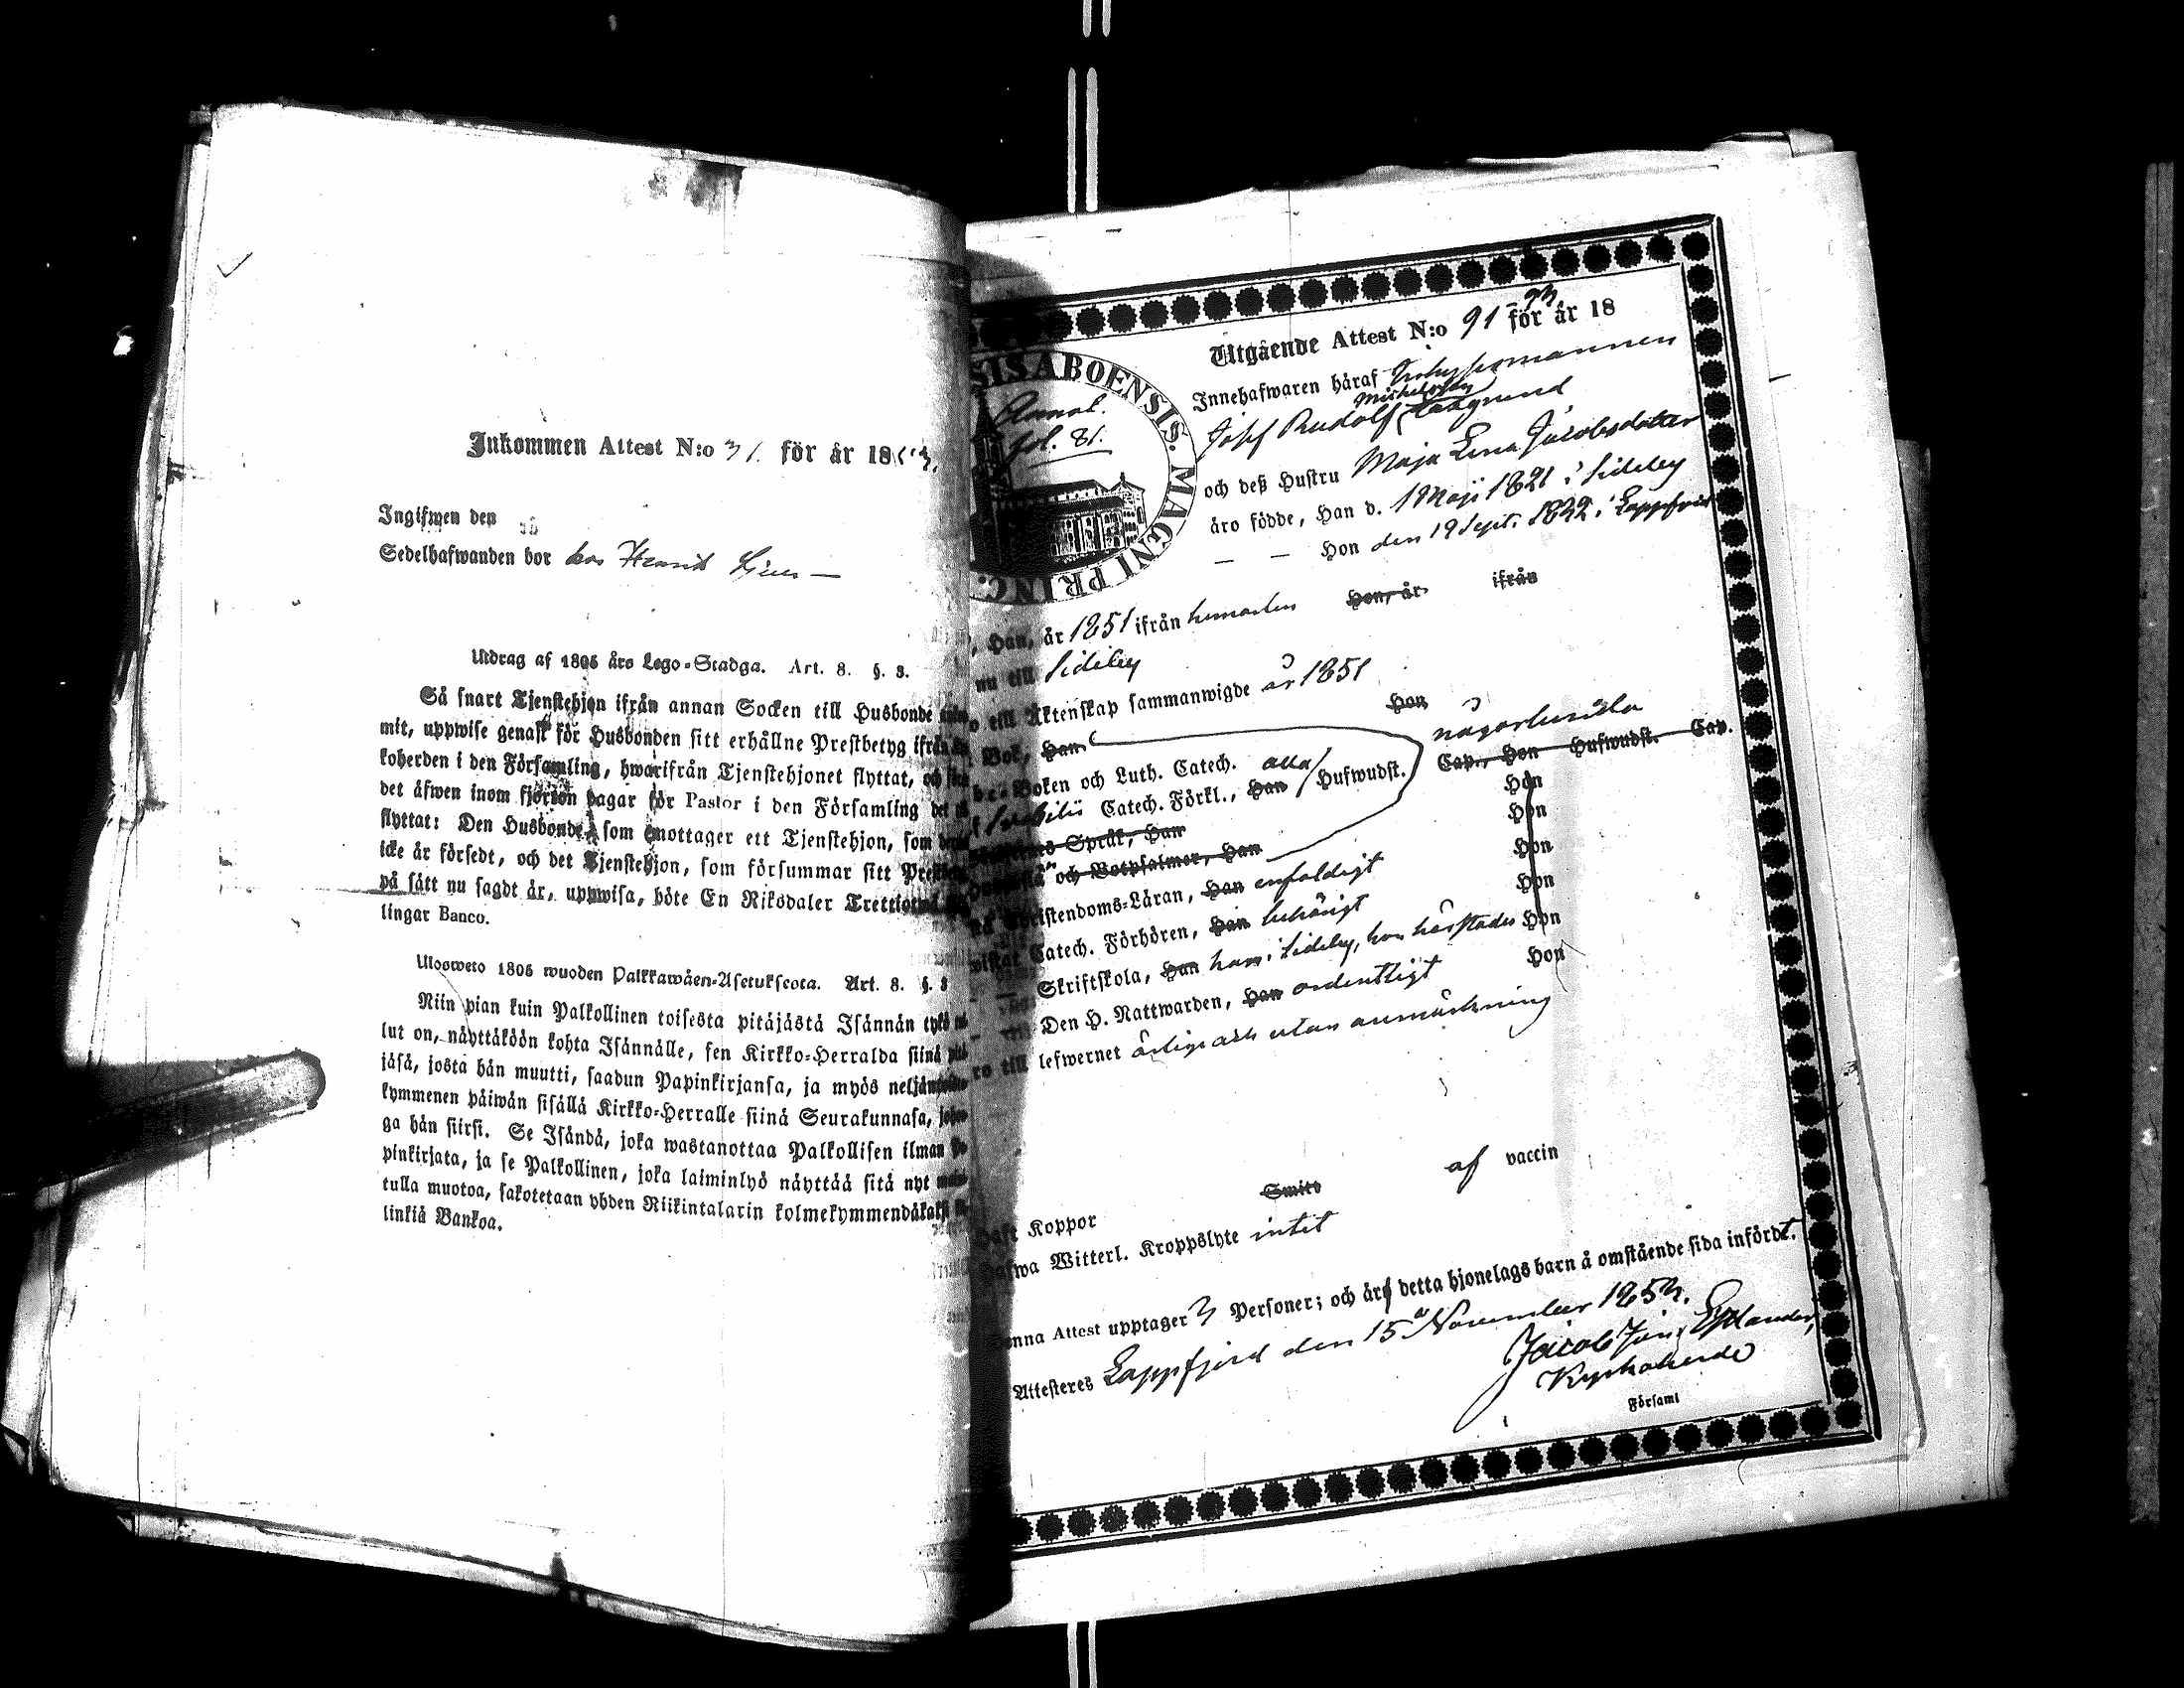 Inkommen Attest N:o 31. för år 1853.
Ingifwen den
Sedelhafwanden bor hos Henrik
Utdrag af 1805 års Lego-Stadga. Art. 8. §. 3.
Så snart Tjenstehjon ifrån annan Socken till Husbonde
mit, uppwise genast för Husbonden sitt erhållne Prestbetyg ifrån
koherden i den Församling, hwarifrån Tjenstehjonet flyttat, och
det äfwen inom fjorton dagar för Pastor i den Församling det
flyttat: Den Husbonde, som emottager ett Tjenstehjon, som
icke är försedt, och det Tjenstehjon, som försummar sitt
på sätt nu sagdt är, uppwisa, böte En Riksdaler
lingar Banco.
Ulosweto 1805 wuoden Palkkawäen-Asetuksesta. Art. 8. §. 3
Niin pian kuin Palkollinen toisesta pitäjästä Isännän tykö
lut on, näyttäköön kohta Isännälle, sen Kirkko-Herralda siinä
jäsä, josta hän muutti, saadun Papinkirjansa, ja myös
kymmenen päiwän sisällä Kirkko-Herralle siinä Seurakunnasa,
ga hän siirsi. Se Isändä, joka wastanottaa Palkollisen ilman
pinkirjata, ja se Palkollinen, joka laiminlyö näyttää sitä nyt
tulla muotoa, sakotetaan yhden Riikintalarin
linkiä Bankoa.
SIS ABOENSIS. MAGNI PRINC.
fol. 81.
Utgående Attest N:o 91 för år 18 53
Innehafwaren häraf
Josef Rudolf
och deß Hustru Maja Lena Jacobsdotter
äro födde, Han d. 1 Maji 1821 i Sideby
— — Hon den 19 Sept. 1832 i Lappfjerd
, Han, år 1851 ifrån Hon, år ifrån
nu till Sideby
till Äktenskap sammanwigde år 1851
Bok, Han Hon
Boken och Luth. Catech. alla någorlunda
Catech. Förkl., Han Hufwudst. Cap., Hon Hufwudst. Cap.
Språk, Han Hon
och Botpsalmer, Han Hon
Christendoms-Läran, Han enfaldigt Hon
Catech. Förhören, Han behörigt Hon
Skriftskola, Han han i Sideby, hon härstädes Hon
Den H. Nattwarden, Han ordentligt Hon
till lefwernet ärlige och utan anmärkning
haft Koppor Smitt af vaccin
Hafwa Witterl. Kroppslyte intet
Denna Attest upptager 3 Personer; och är detta hjonelags barn å omstående sida infördt.
Attesteres Lappfjerd den 15 November 1853.
Jacob
Kyrkoherde
Församl